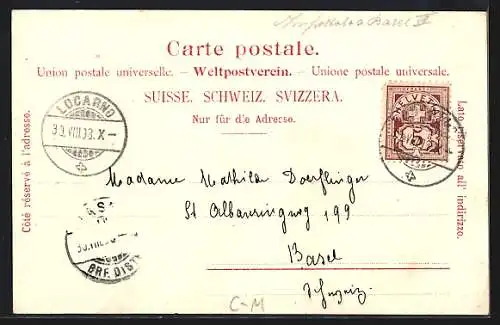 Carte postale.
Union postale universelle. – Weltpostverein. – Unione postale universale.
SUISSE. SCHWEIZ. SVIZZERA.
Nur für die Adresse.
Côté réservé à l'adresse.
Lato riservato all' indirizzo.
LOCARNO
30.VIII.03.X–
HELVETIA
Madame Mathilde Doerflinger
St Albanring 199
Basel
Schweiz
BRF. DIST
C-M